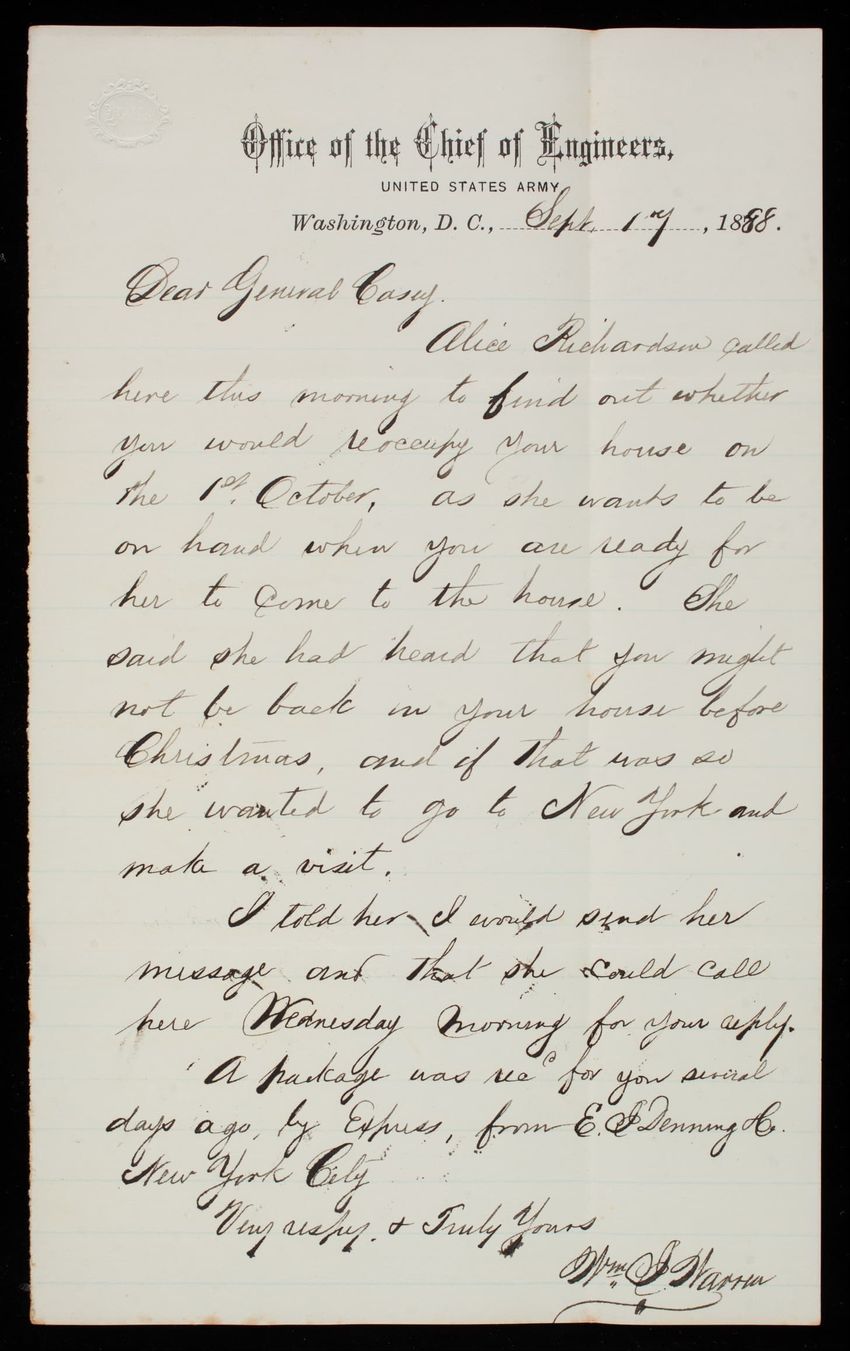 Office of the Chief of Engineers,
UNITED STATES ARMY
Washington, D. C., Sept. 17, 1888.
Dear General Casey.
Alice Richardson called
here this morning to find out whether
you would reoccupy your house on
the 1st. October, as she wants to be
on hand when you are ready for
her to come to the house. She
said she had heard that you might
not be back in your house before
Christmas, and if that was so
she wanted to go to New York and
make a visit.
I told her I would send her
message and that she could call
here Wednesday morning for your reply.
A package was recd for you several
days ago, by Express, from E. J Denning & Co.
New York City
Very respy. & Truly Yours
Wm. J Warren